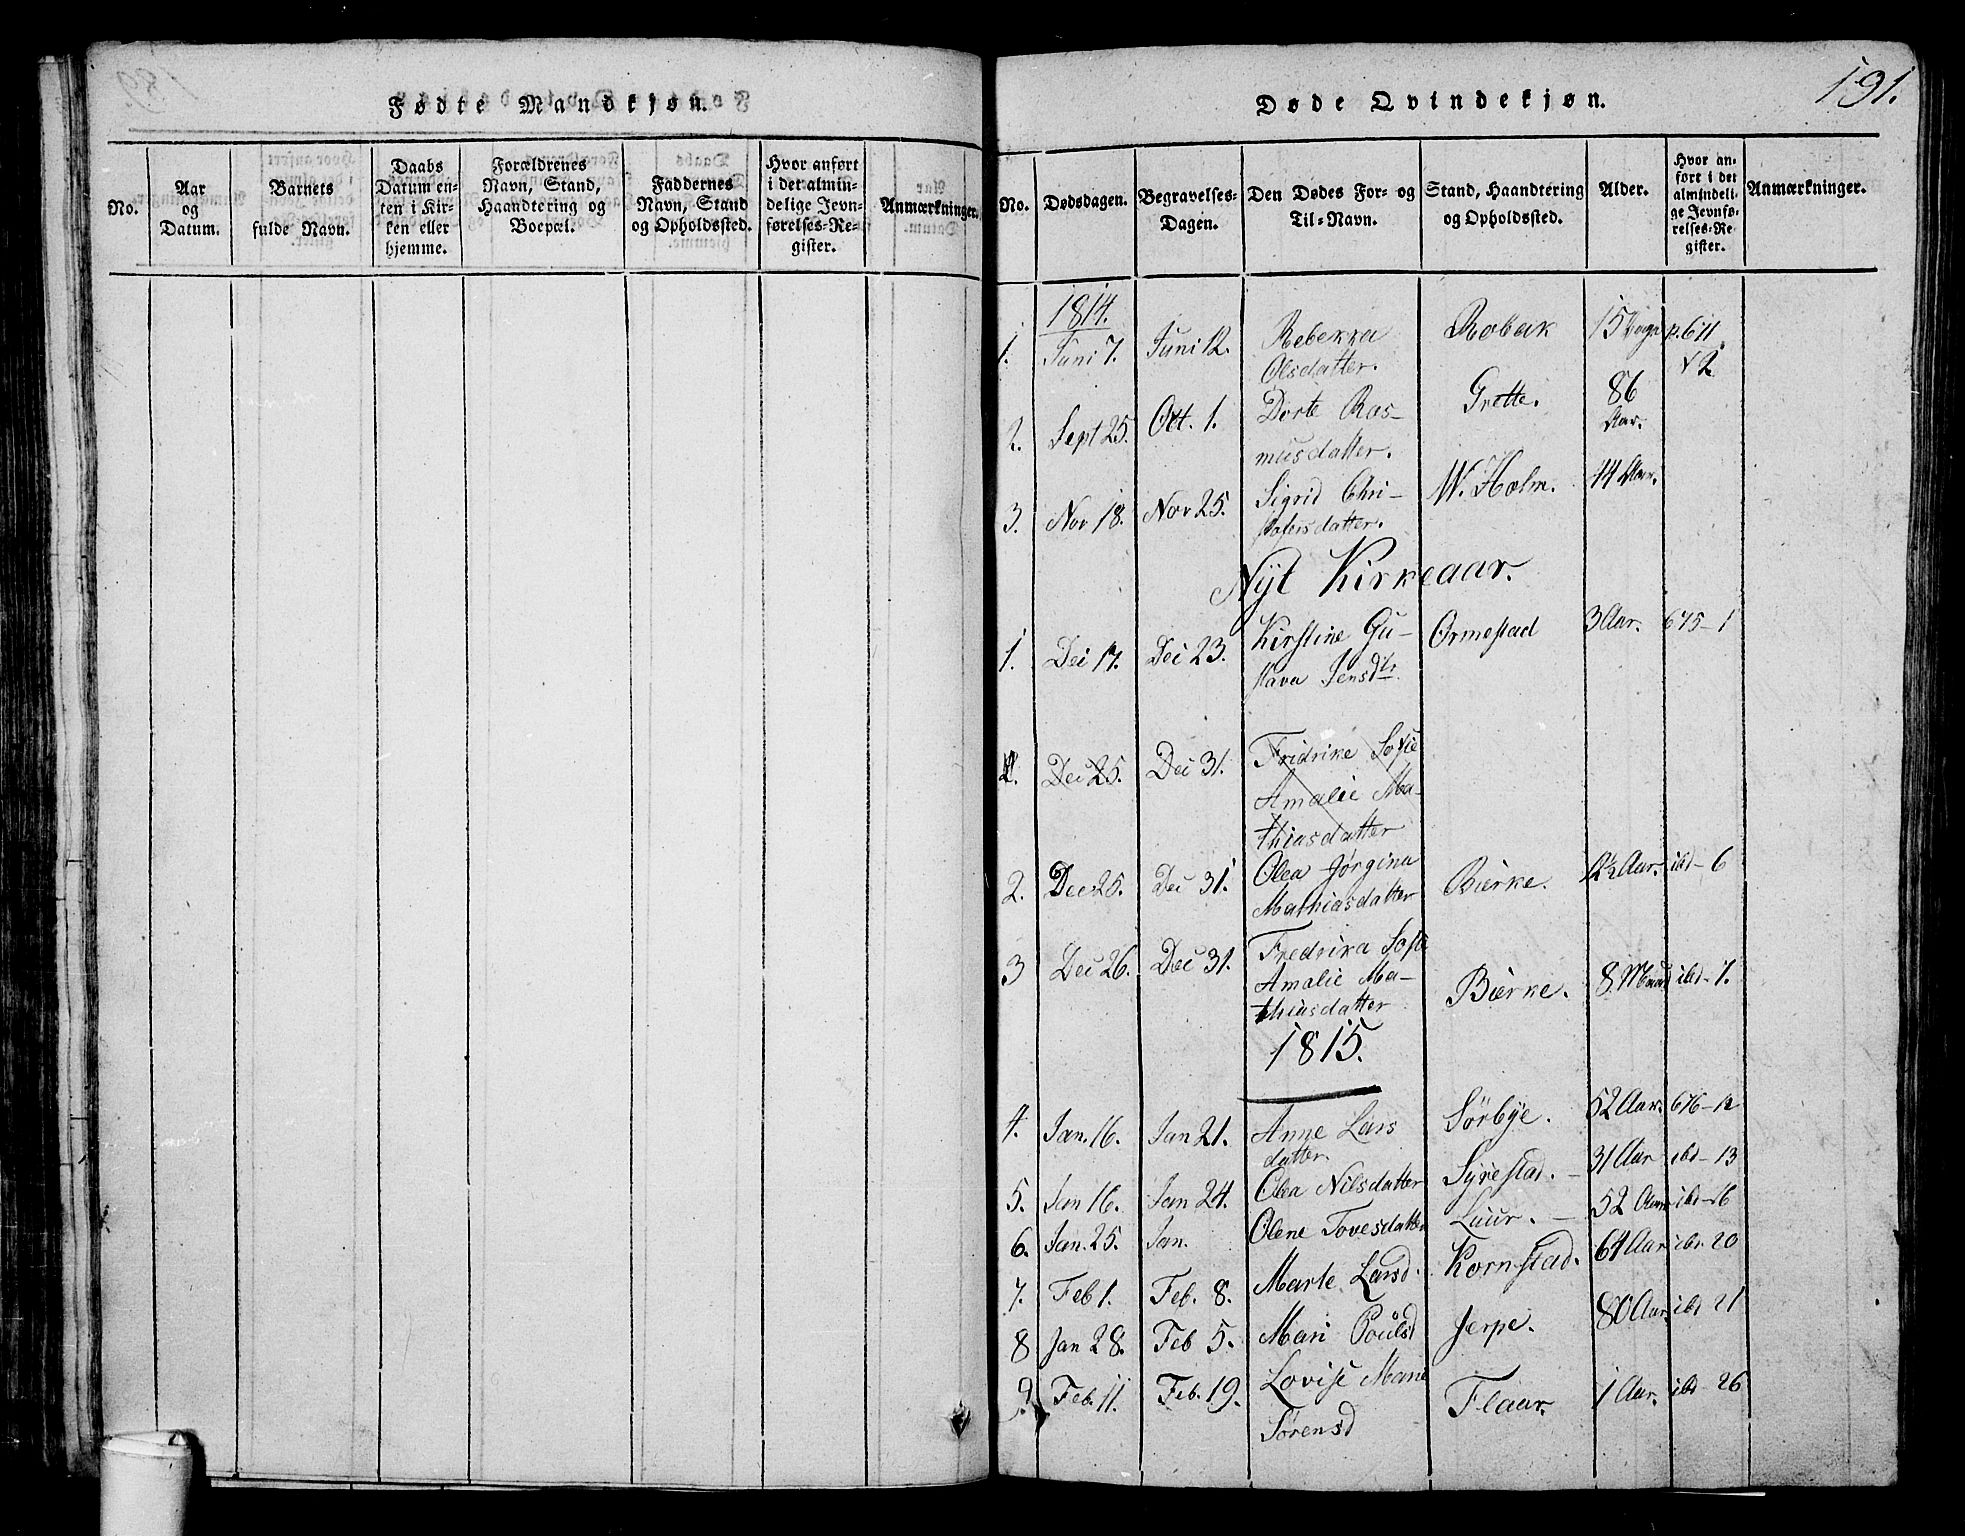 Fødte Mandkjøn.
No.
Aar og Datum.
Barnets fulde Navn.
Daabs Datum enten i Kirken eller hjemme.
Forældrenes Navn, Stand, Haandtering og Boepæl.
Faddernes Navn, Stand og Opholdssted.
Hvor anført i det almindelige Jevnførelses-Register.
Anmærkninger.
191.
Døde Qvindekjøn.
No.
Dødsdagen.
Begravelses-Dagen.
Den Dødes For- og Til-Navn.
Stand, Haandtering og Opholdssted.
Alder.
Hvor anført i det almindelige Jevnførelses-Register.
Anmærkninger.
1814.
1. Juni 7. Juni 12. Rebekka Robak 15 p. 611
Olsdatter. 42
2. Sept 25. Oct. 1. Dorte Ras- Grette. 86
musdatter. Aar.
3. Nov 18. Nov 25. Sigrid Chri- W. Holm. 14 Aar.
stofersdatter.
Nyt Kirkeaar.
1. Dec 17. Dec 23. Kirstine Gu- Ormestad 3 Aar. 675-1
stava Jensdtr.
2. Dec 25. Dec 31. Fridrike Sofie
Amalie Ma-
thiasdatter
2. Dec 25. Dec 31. Olea Jørgina Bierke. 2½ Aar. ibd-6
Mathiasdatter
3 Dec 26. Dec 31. Fredrika Sofie
Amalie Ma- Bierke. 8 Maan ibd-7.
thiasdatter
1815.
4. Jan. 16. Jan 21. Anne Lars Sörbye. 52 Aar. 676-12
datter.
5. Jan 16. Jan 24. Olea Nilsdatter Syrestad. - 31 Aar ibd-13
6. Jan. 25. Jan. Olene Tovesdatter Luur. - 52 Aar ibd-16
7. Feb 1. Feb. 8. Marte Larsd. Kornstad. 64 Aar ibd. 20
8 Jan 28. Feb 5. Mari Poulsd Jerpe. 80 Aar. ibd 21
9. Feb. 11. Feb. 19. Lovise Marie Flaar. 1 Aar. ibd-26
Sörensd